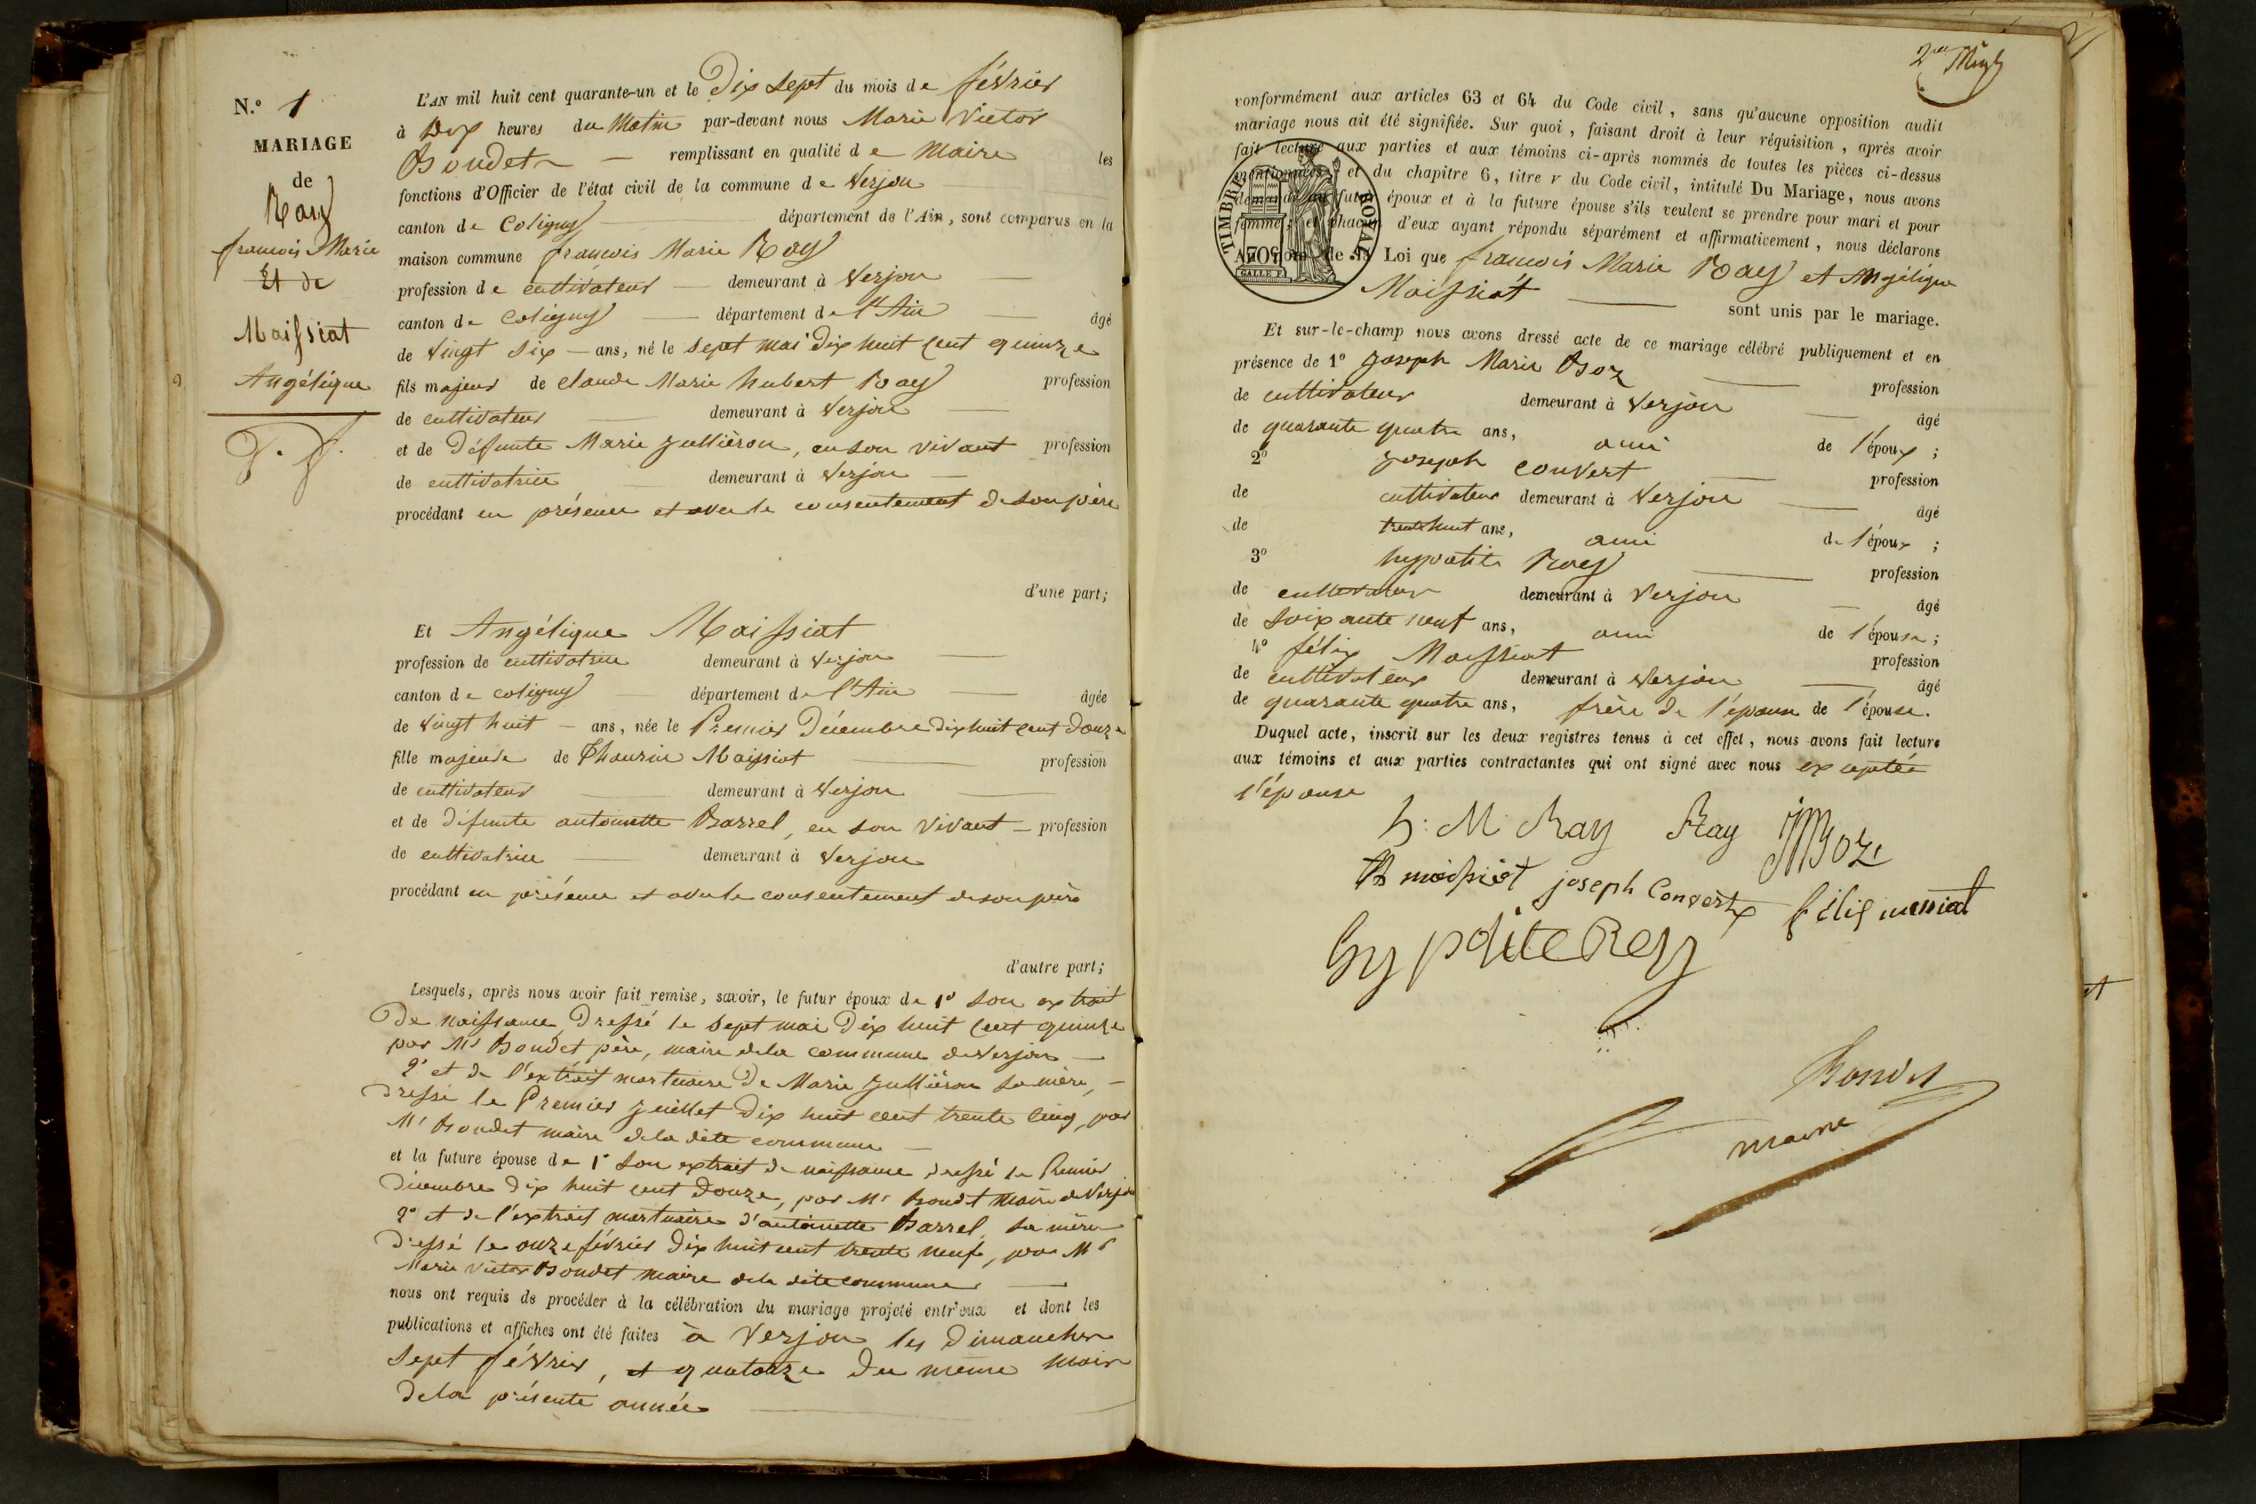 N.º 1
MARIAGE
de
Ray
françois Marie
Et de
Maissiat
Angélique
L'AN mil huit cent quarante-un et le Dix Sept du mois de février
à Dix heures du Matin par-devant nous Marie Victor
Bondet remplissant en qualité de Maire les
fonctions d'Officier de l'état civil de la commune de Verjon
canton de Coligny département de l'Ain, sont comparus en la
maison commune françois Marie Ray
profession de cultivateur demeurant à Verjon
canton de Coligny département de l'Ain âgé
de Vingt Six ans, né le Sept mai Dix huit Cent quinze
fils majeur de Claude Marie hubert Ray profession
de cultivateur demeurant à Verjon
et de Défunte Marie Jullièron, en son vivant profession
de cultivatrice demeurant à Verjon
procédant en présence et avec le consentement de son père
d'une part;
Et Angélique Maissiat
profession de cultivatrice demeurant à Verjon
canton de Coligny département de l'Ain âgée
de Vingt huit ans, née le Premier Décembre dix huit Cent Douze
fille majeure de Thaurin Maissiat profession
de cultivateur demeurant à Verjon
et de défunte antoinette Barrel, en son vivant profession
de cultivatrice demeurant à Verjon
procédant en présence et avec le consentement de son père
d'autre part;
Lesquels, après nous avoir fait remise, savoir, le futur époux de 1º Son extrait
De naissance Dressé le Sept mai Dix huit Cent quinze
par Mr Bondet père, maire dela commune de Verjon
2º et de l'extrait mortuaire De Marie Jullièron Sa mère,
Dressé le Premier Juillet Dix huit cent trente Cinq, par
Mr Bondet maire dela dite commune
et la future épouse de 1º Son extrait de naissance dressé le Premier
Décembre Dix huit cent Douze, par Mr Bondet Maire de Verjon
2º et de l'extrait mortuaire d'antoinette Barrel, Sa mère
Dressé le onze février Dix huit cent trente neuf, par Mr
Marie Victor Bondet maire dela dite commune
nous ont requis de procéder à la célébration du mariage projeté entr'eux et dont les
publications et affiches ont été faites à Verjon les Dimanches
Sept février, et quatorze Du même mois
Dela présente année
conformément aux articles 63 et 64 du Code civil, sans qu'aucune opposition audit
mariage nous ait été signifiée. Sur quoi, faisant droit à leur réquisition, après avoir
fait lecture aux parties et aux témoins ci-après nommés de toutes les pièces ci-dessus
mentionnées et du chapitre 6, titre v du Code civil, intitulé Du Mariage, nous avons
demandé au futur époux et à la future épouse s'ils veulent se prendre pour mari et pour
femme; et chacun d'eux ayant répondu séparément et affirmativement, nous déclarons
Au nom de la Loi que françois Marie Ray et Angélique
Maissiat sont unis par le mariage.
TIMBRE ROYAL
70
Et sur-le-champ nous avons dressé acte de ce mariage célébré publiquement et en
présence de 1º Joseph Marie Boz profession
de cultivateur demeurant à Verjon âgé
de quarante quatre ans, ami de l'époux;
2º Joseph Convert profession
de cultivateur demeurant à Verjon âgé
de trente huit ans, ami de l'époux;
3º hyppolite Ray profession
de cultivateur demeurant à Verjon âgé
de Soixante neuf ans, ami de l'épouse;
4º félix Maissiat profession
de cultivateur demeurant à Verjon âgé
de quarante quatre ans, frère de l'épouse de l'épouse.
Duquel acte, inscrit sur les deux registres tenus à cet effet, nous avons fait lecture
aux témoins et aux parties contractantes qui ont signé avec nous exceptée
l'épouse
h: M Ray Ray JMBoz
Th maissiat joseph Convert félix massiat
hypolite Rey
Bondet
maire